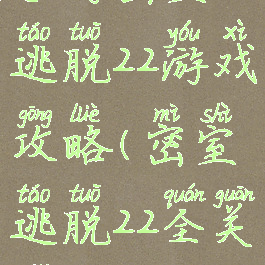 táo tuō yóu xì
逃脱22游戏
gōng lüè mì shì
攻略(密室
táo tuō quán guān
逃脱22全关